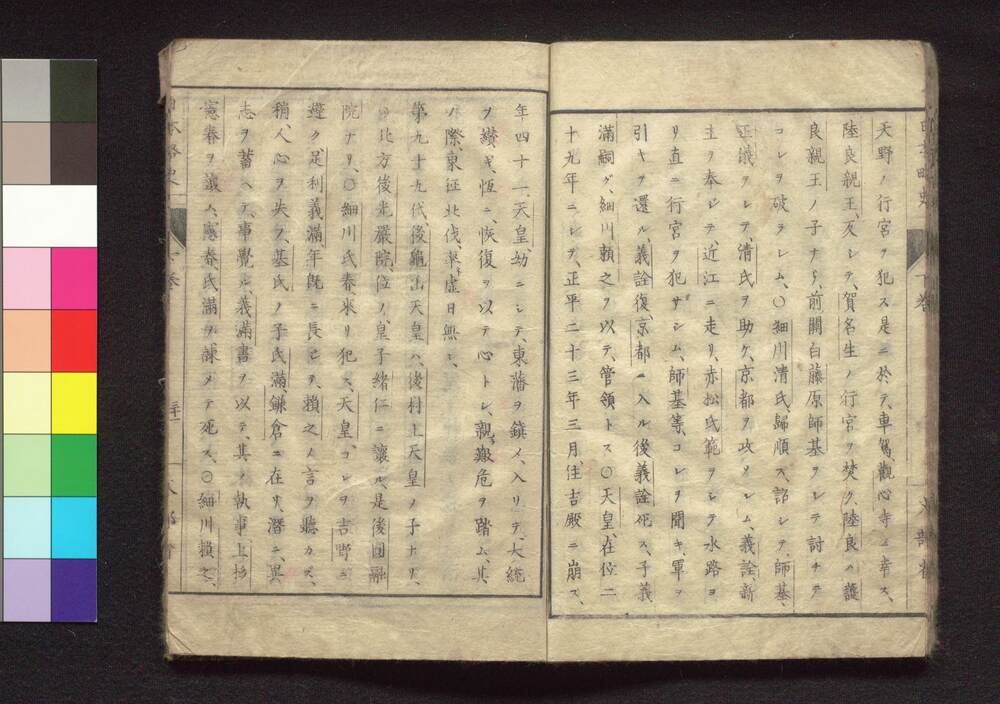 天野ノ行宮ヲ犯ス是ニ於テ、車駕、觀心寺ニ幸ス、
陸良親王、反シテ、賀名生ノ行宮ヲ焚ク、陸良ハ護
良親王ノ子ナリ、前關白藤原師基ヲシテ討チテ
コレヲ破ラシム、〇細川清氏歸順ス、詔シテ、師基、
正儀ヲシテ清氏ヲ助ケ、京都ヲ攻メシム、義詮、新
主ヲ奉シテ、近江ニ走リ、赤松氏範ヲシテ水路ヨ
リ直ニ行宮ヲ犯サシム、師基等、コレヲ聞キ、軍ヲ
引キテ還ル、義詮復、京都ニ入ル後義詮死ス、子義
滿嗣グ、細川賴之ヲ以テ、管領トス〇天皇、在位二
十九年ニシテ、正平二十三年三月住吉殿ニ崩ス、
年四十一、天皇、幼ニシテ、東藩ヲ鎮メ、入リテ、大統
ヲ纉ギ、恆ニ、恢復ヲ以テ心トシ、親、艱危ヲ踏ム、其
ノ際、東征北伐、殆虛日無シ、
第九十九代後龜山天皇ハ、後村上天皇ノ子ナリ、
北方後光嚴院、位ヲ、皇子緒仁ニ讓ル、是後圓融
院ナリ、〇細川氏春來リ犯ス、天皇、コレヲ吉野ニ
避ク、足利義滿、年旣ニ長シテ、賴之ノ言ヲ聽カズ、
稍、人心ヲ失フ、基氏ノ子氏滿、鎌倉ニ在リ、潛ニ、異
志ヲ蓄ヘテ、事覺ル、義滿書ヲ以テ、其ノ執事上杉
憲春ヲ讓ム、憲春氏滿ヲ諫メテ死ス、〇細川賴之、